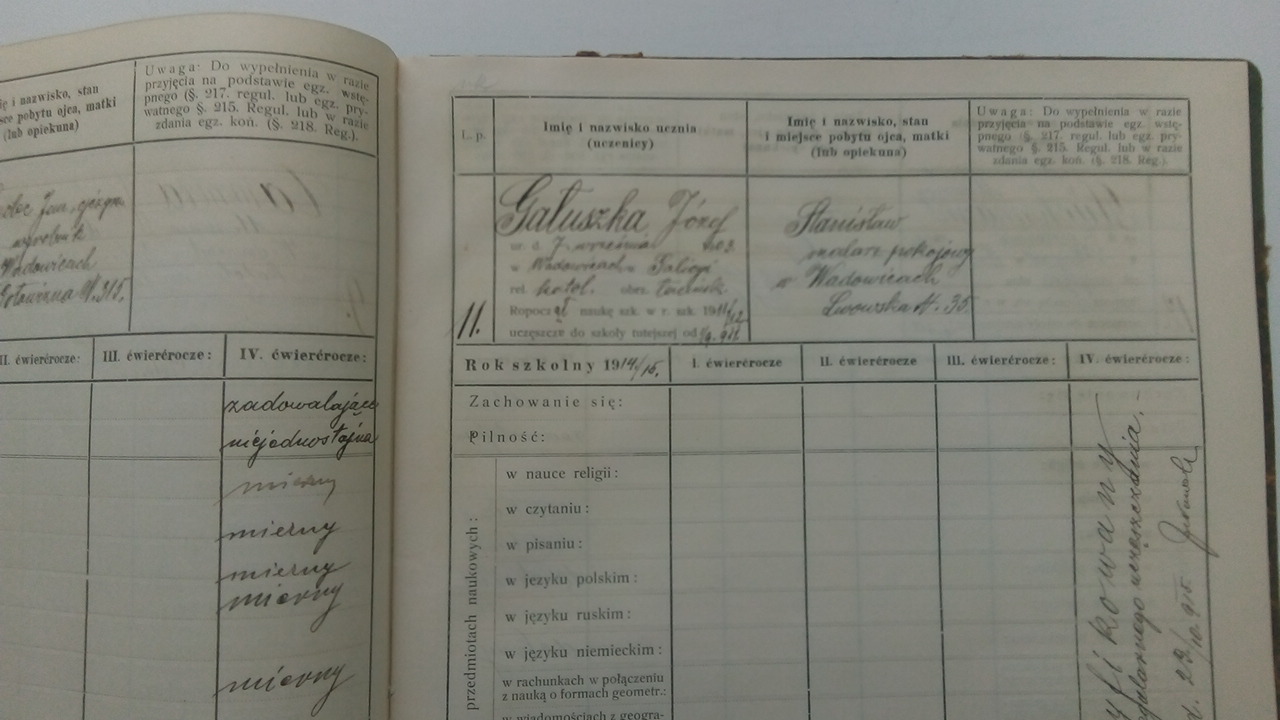 ię i nazwisko, stan
sce pobytu ojca, matki
(lub opiekuna)
Uwaga: Do wypełnienia w razie
przyjęcia na podstawie egz. wstę-
pnego (§. 217. regul. lub egz. pry-
watnego §. 215. Regul. lub w razie
zdania egz. koń. (§. 218. Reg.).
Jan
wyrobnik
Wadowicach
II. ćwierćrocze:
III. ćwierćrocze:
IV. ćwierćrocze:
zadowalające
niejednostajna
mierny
mierny
mierny
mierny
mierny
L. p.
Imię i nazwisko ucznia
(uczenicy)
Imię i nazwisko, stan
i miejsce pobytu ojca, matki
(lub opiekuna)
Uwaga: Do wypełnienia w razie
przyjęcia na podstawie egz. wstę-
pnego §. 217. regul. lub egz. pry-
watnego §. 215. Regul. lub w razie
zdania egz. koń. (§. 218. Reg.).
11.
Gałuszka Józef
ur. d. 7 września 903
w Wadowicach Galicyi
rel. katol. obrz. łacińsk.
Ropoczął naukę szk. w r. szk. 1911/12
uczęszcze do szkoły tutejszej od 1/9. 911.
Stanisław
malarz pokojowy
w Wadowicach
Lwowska N. 35
Rok szkolny 1914/15.
I. ćwierćrocze
II. ćwierćrocze
III. ćwierćrocze:
IV. ćwierćrocze:
Zachowanie się:
Pilność:
przedmiotach naukowych:
w nauce religii:
w czytaniu:
w pisaniu:
w jezyku polskim:
w języku ruskim:
w języku niemieckim:
w rachunkach w połączeniu
z nauką o formach geometr.:
w wiadomościach z geogra-
yfikowany
egularnego uczęszczania.